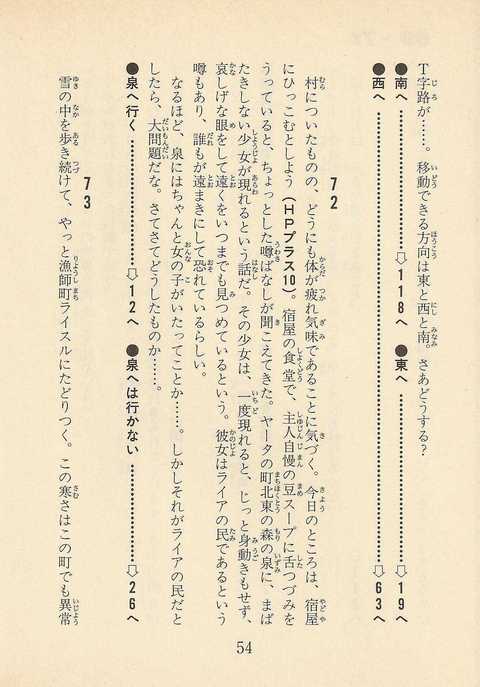 T字路が……。移動できる方向は東と西と南。さあどうする？
●南へ………………⇨118へ　●東へ………………⇨19へ
●西へ………………………………………………⇨63へ
72
村についたものの、どうにも体が疲れ気味であることに気づく。今日のところは、宿屋
にひっこむとしよう（HPプラス10）。宿屋の食堂で、主人自慢の豆スープに舌つづみを
うっていると、ちょっとした噂ばなしが聞こえてきた。ヤータの町北東の森の泉に、まば
たきしない少女が現れるという話だ。その少女は、一度現れると、じっと身動きもせず、
哀しげな眼をして遠くをいつまでも見つめているという。彼女はライアの民であるという
噂もあり、誰もが遠まきにして恐れているらしい。
なるほど、泉にはちゃんと女の子がいたってことか……。しかしそれがライアの民だと
したら、大問題だな。さてさてどうしたものか……。
●泉へ行く………………⇨12へ　●泉へは行かない………………⇨26へ
73
雪の中を歩き続けて、やっと漁師町ライスルにたどりつく。この寒さはこの町でも異常
54